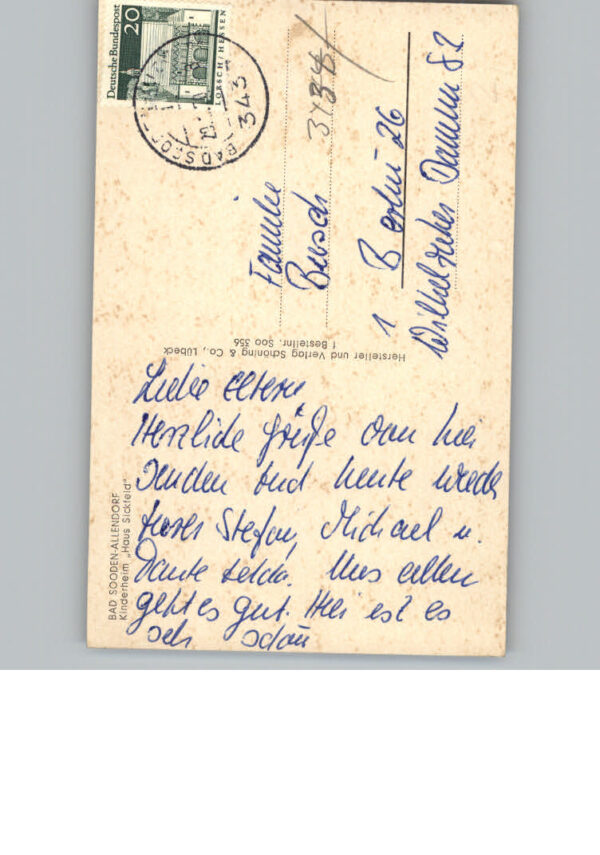 Deutsche Bundespost
20
LORSCH / HESSEN
BAD SOO
343
3434
Familie
Busch
1 Berlin 26
Wilhelmsruher Damm 82
Hersteller und Verlag Schöning & Co., Lübeck
f Bestellnr. Soo 356
BAD SOODEN-ALLENDORF
Kinderheim „Haus Sickfeld"
Liebe Eltern,
Herzliche Grüße von hier
senden und heute wieder
Stefan, Michael u.
Tante Uns allen
geht es gut. Hier ist es
sehr schön